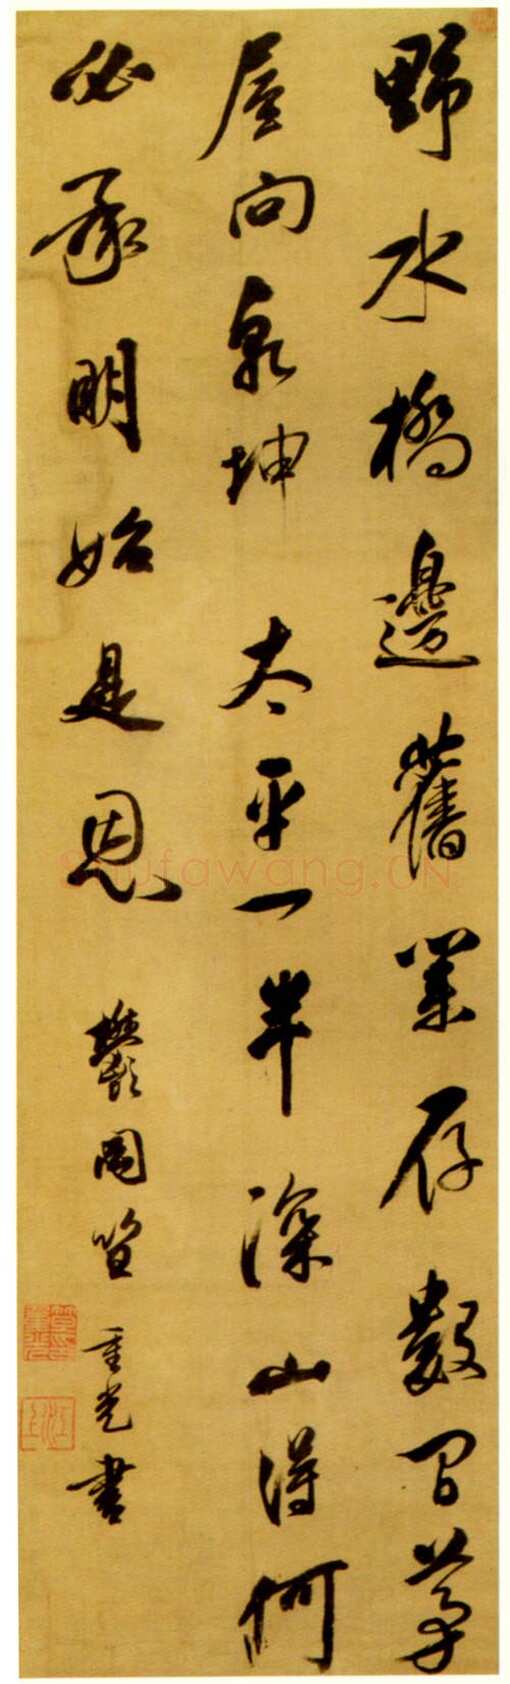 野水橋邊舊業存數間茅
屋向乾坤太平一半深山得何
必承明始是恩
鬱岡笪重光書
江上
Shufawang.CN